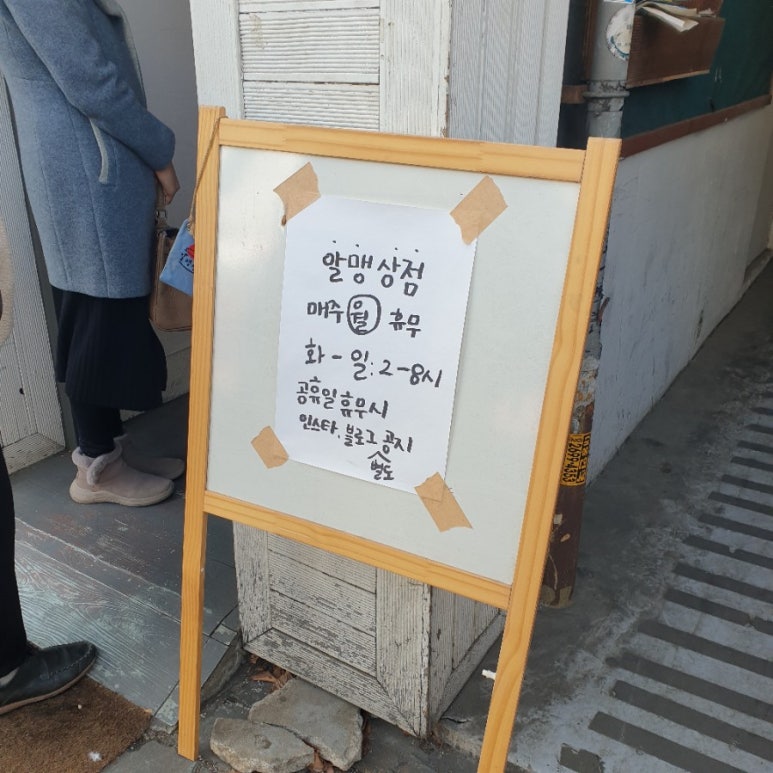 알맹상점
매주 월 휴무
화-일: 2-8시
공휴일 휴무시
인스타, 블로그 공지
별도